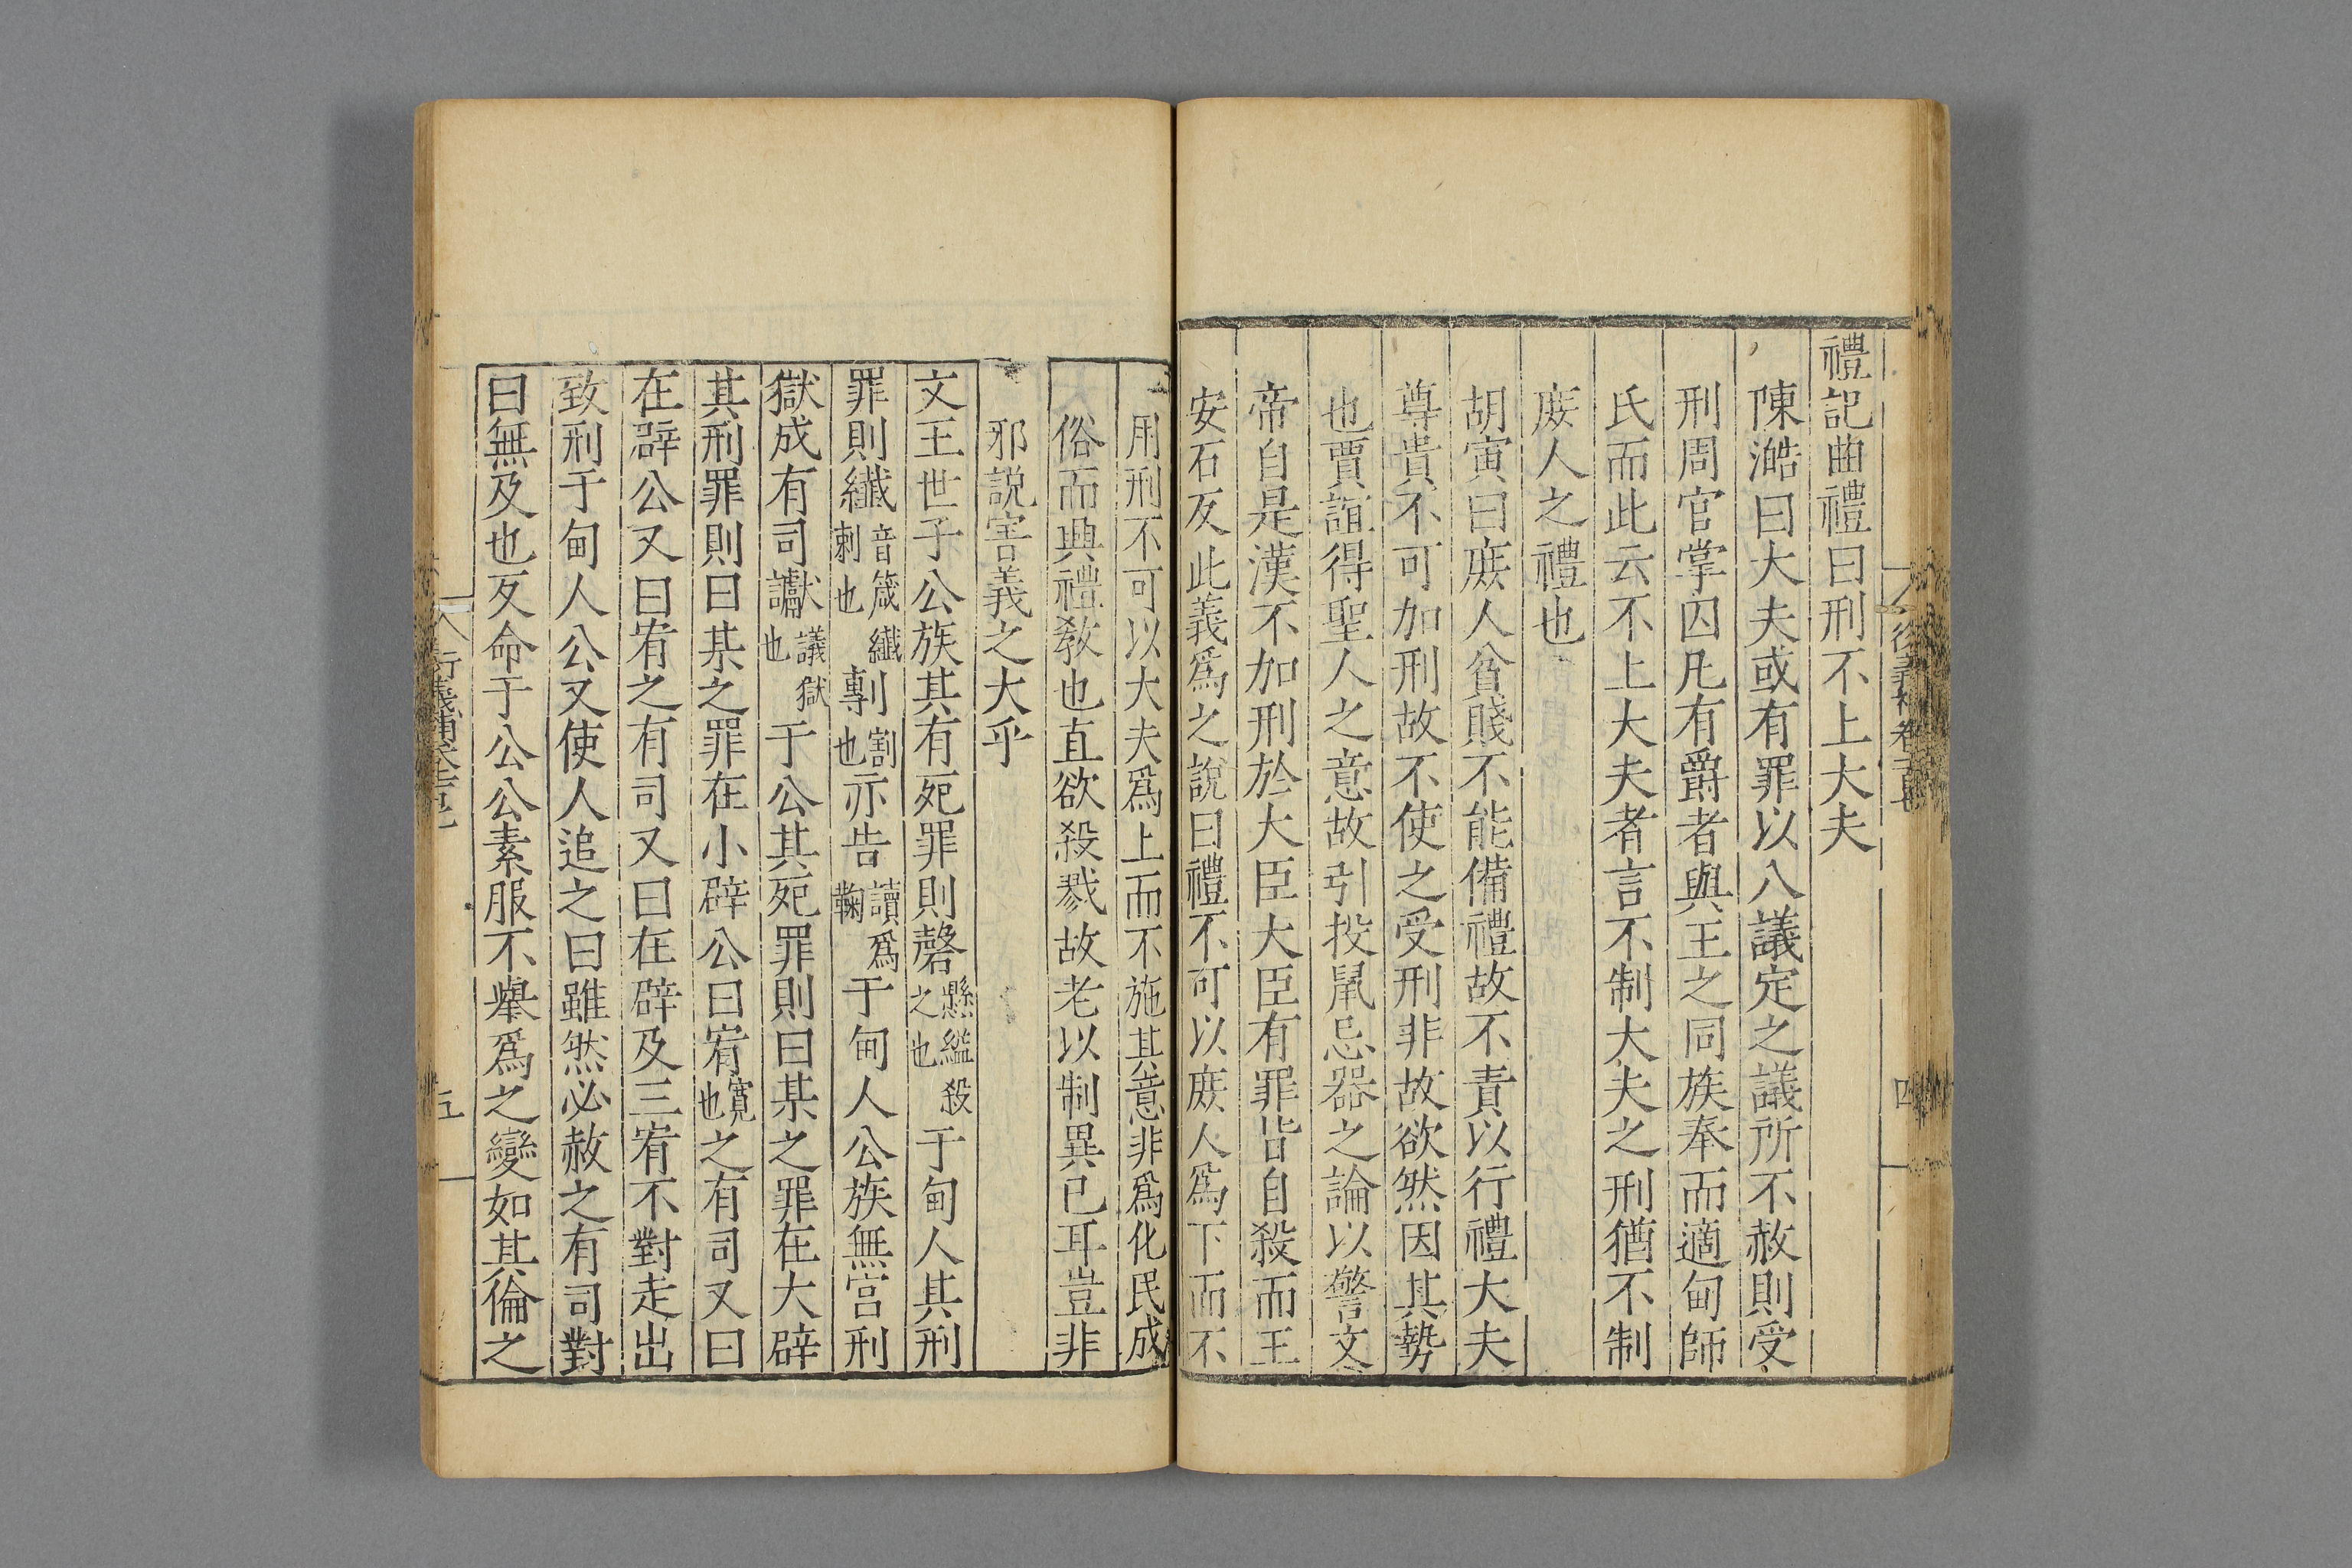 禮記曲禮曰刑不上大夫
陳澔曰大夫或有罪以八議定之議所不赦則受
刑周官掌囚凡有爵者與王之同族奉而適甸師
氏而此云不上大夫者言不制大夫之刑猶不制
庻人之禮也
胡寅曰庻人貧賤不能備禮故不責以行禮大夫
尊貴不可加刑故不使之受刑非故欲然因其勢
也賈誼得聖人之意故引投鼠忌器之論以警文
帝自是漢不加刑於大臣大臣有罪皆自殺而王
安石反此義爲之説曰禮不可以庻人爲下而不
用刑不可以大夫爲上而不施其意非爲化民成
俗而興禮敎也直欲殺戮故老以制異已耳豈非
邪説害義之大乎
文王世子公族其有死罪則磬懸縊殺之也于甸人其刑
罪則纖音箴纖刺也剸割也亦告讀爲鞠于甸人公族無宮刑
獄成有司讞議獄也于公其死罪則曰某之罪在大辟
其刑罪則曰某之罪在小辟公曰宥寬也之有司又曰
在辟公又曰宥之有司又曰在辟及三宥不對走出
致刑于甸人公又使人追之曰雖然必赦之有司對
曰無及也反命于公公素服不舉爲之變如其倫之
五